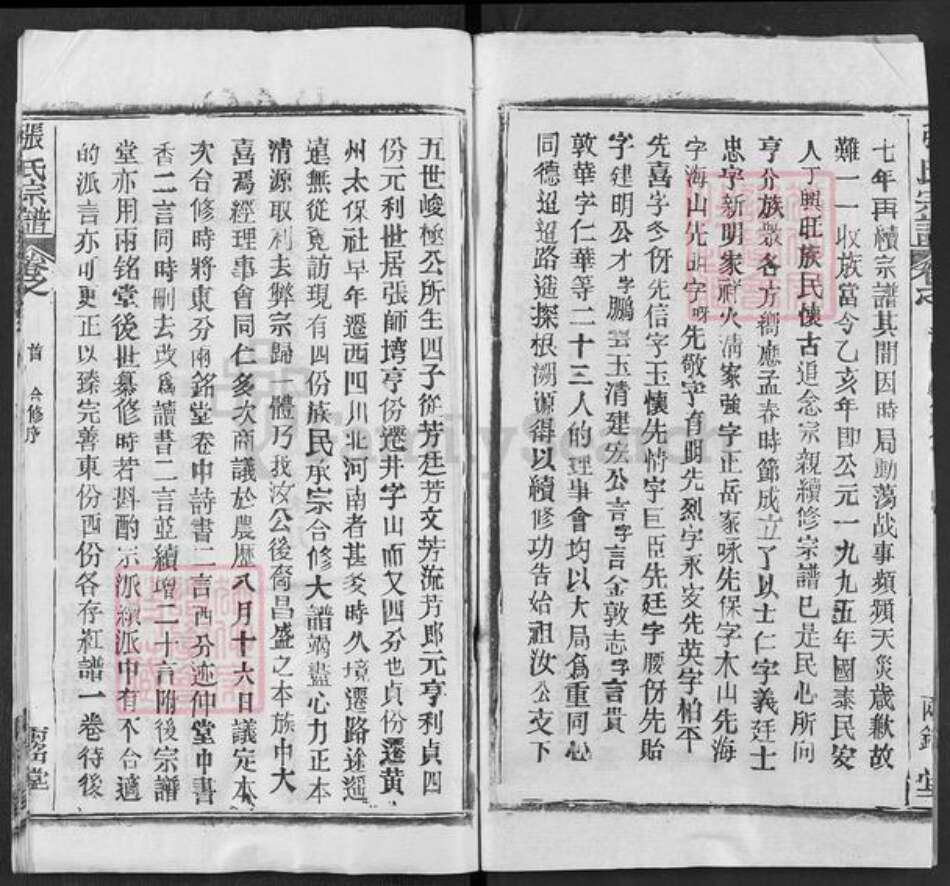 七年再續宗譜其間因時局動蕩战事頻頻天災歲歉故
難一一收族當今乙亥年即公元一九九五年國泰民安
人丁興旺族民懷古追念宗親續修宗譜已是民心所向
亨分族衆各方嚮應孟春時節成立了以士仁字義廷士
忠字新明家祥火清家強字正岳家咏先保字木山先海
字海山先 字 先敬字有明先烈字永安先英字柏平
先喜字冬份先信字玉懷先情字巨臣先廷字腰份先貽
字建明公才字鵬雲玉清建宏公言字言金敦志字言貴
敦華字仁華等二十三人的理事會均以大局為重同心
同德迢迢路遥探根溯源得以續修功告始祖汝公支下
五世峻極公所生四子從芳廷芳文芳流芳即元亨利貞四
份元利世居張師塆亨份遷井字山而又四分也貞份遷黄
州太保社早年遷西四川北河南者甚多時久境遷路途遥
遠無從竟訪現有四份族民承宗合修大譜竭盡心力正本
清源取利去弊宗歸一體乃我汝公後裔昌盛之本族中大
喜焉經理事會同仁多次商議於農歷八月十六日議定本
次合修時將東分兩銘堂卷中詩書二言西分迹仰堂中書
香二言同時刪去改為讀書二言並續增二十言附後宗譜
堂亦用兩铭堂後世纂修時若斟酌宗派續派中有不合適
的派言亦可更正以臻完善東份西份各存紅譜一卷待後
張氏宗譜
卷之
首
合修序
兩銘堂